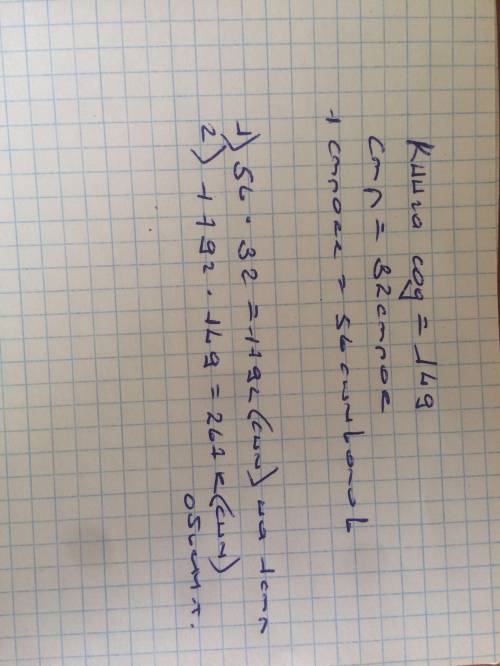 Книга сод = 149
стр = 32 строк
1 строка = 56 символов
1) 56 · 32 = 1792 (сим) на 1 стр
2) 1792 · 149 = 267к (сим)